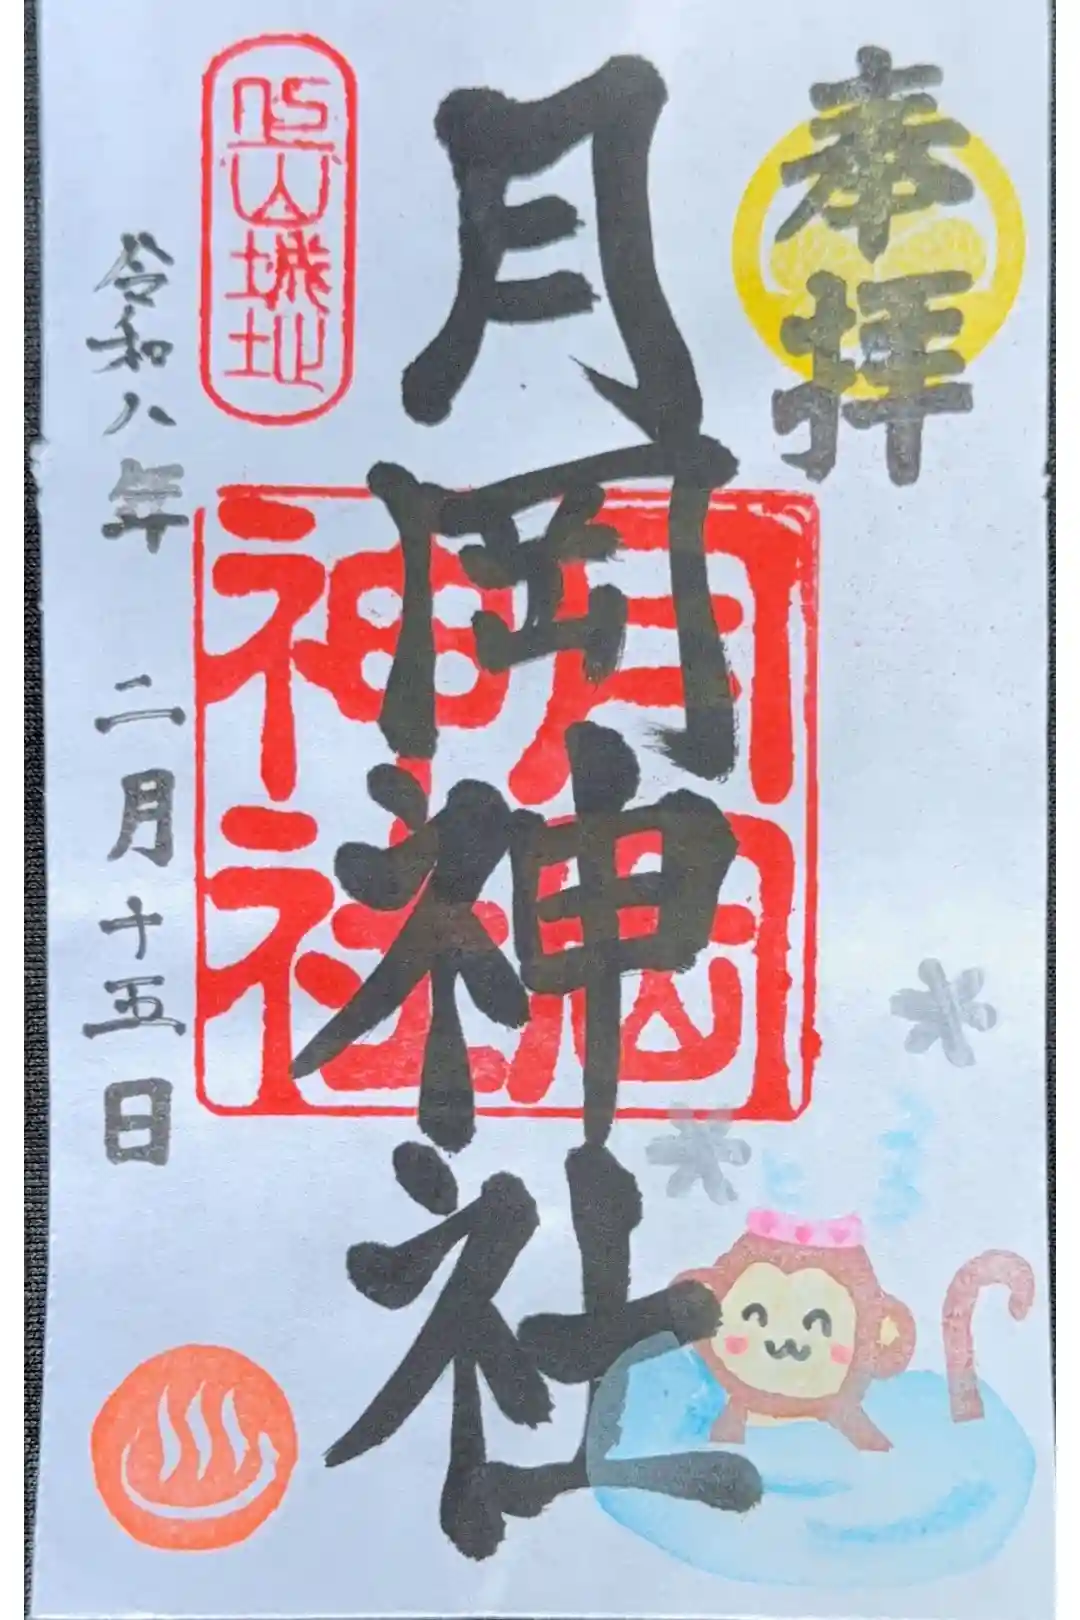 奉拝
月岡神社
月岡
神社
山城址
令和八年 二月十五日